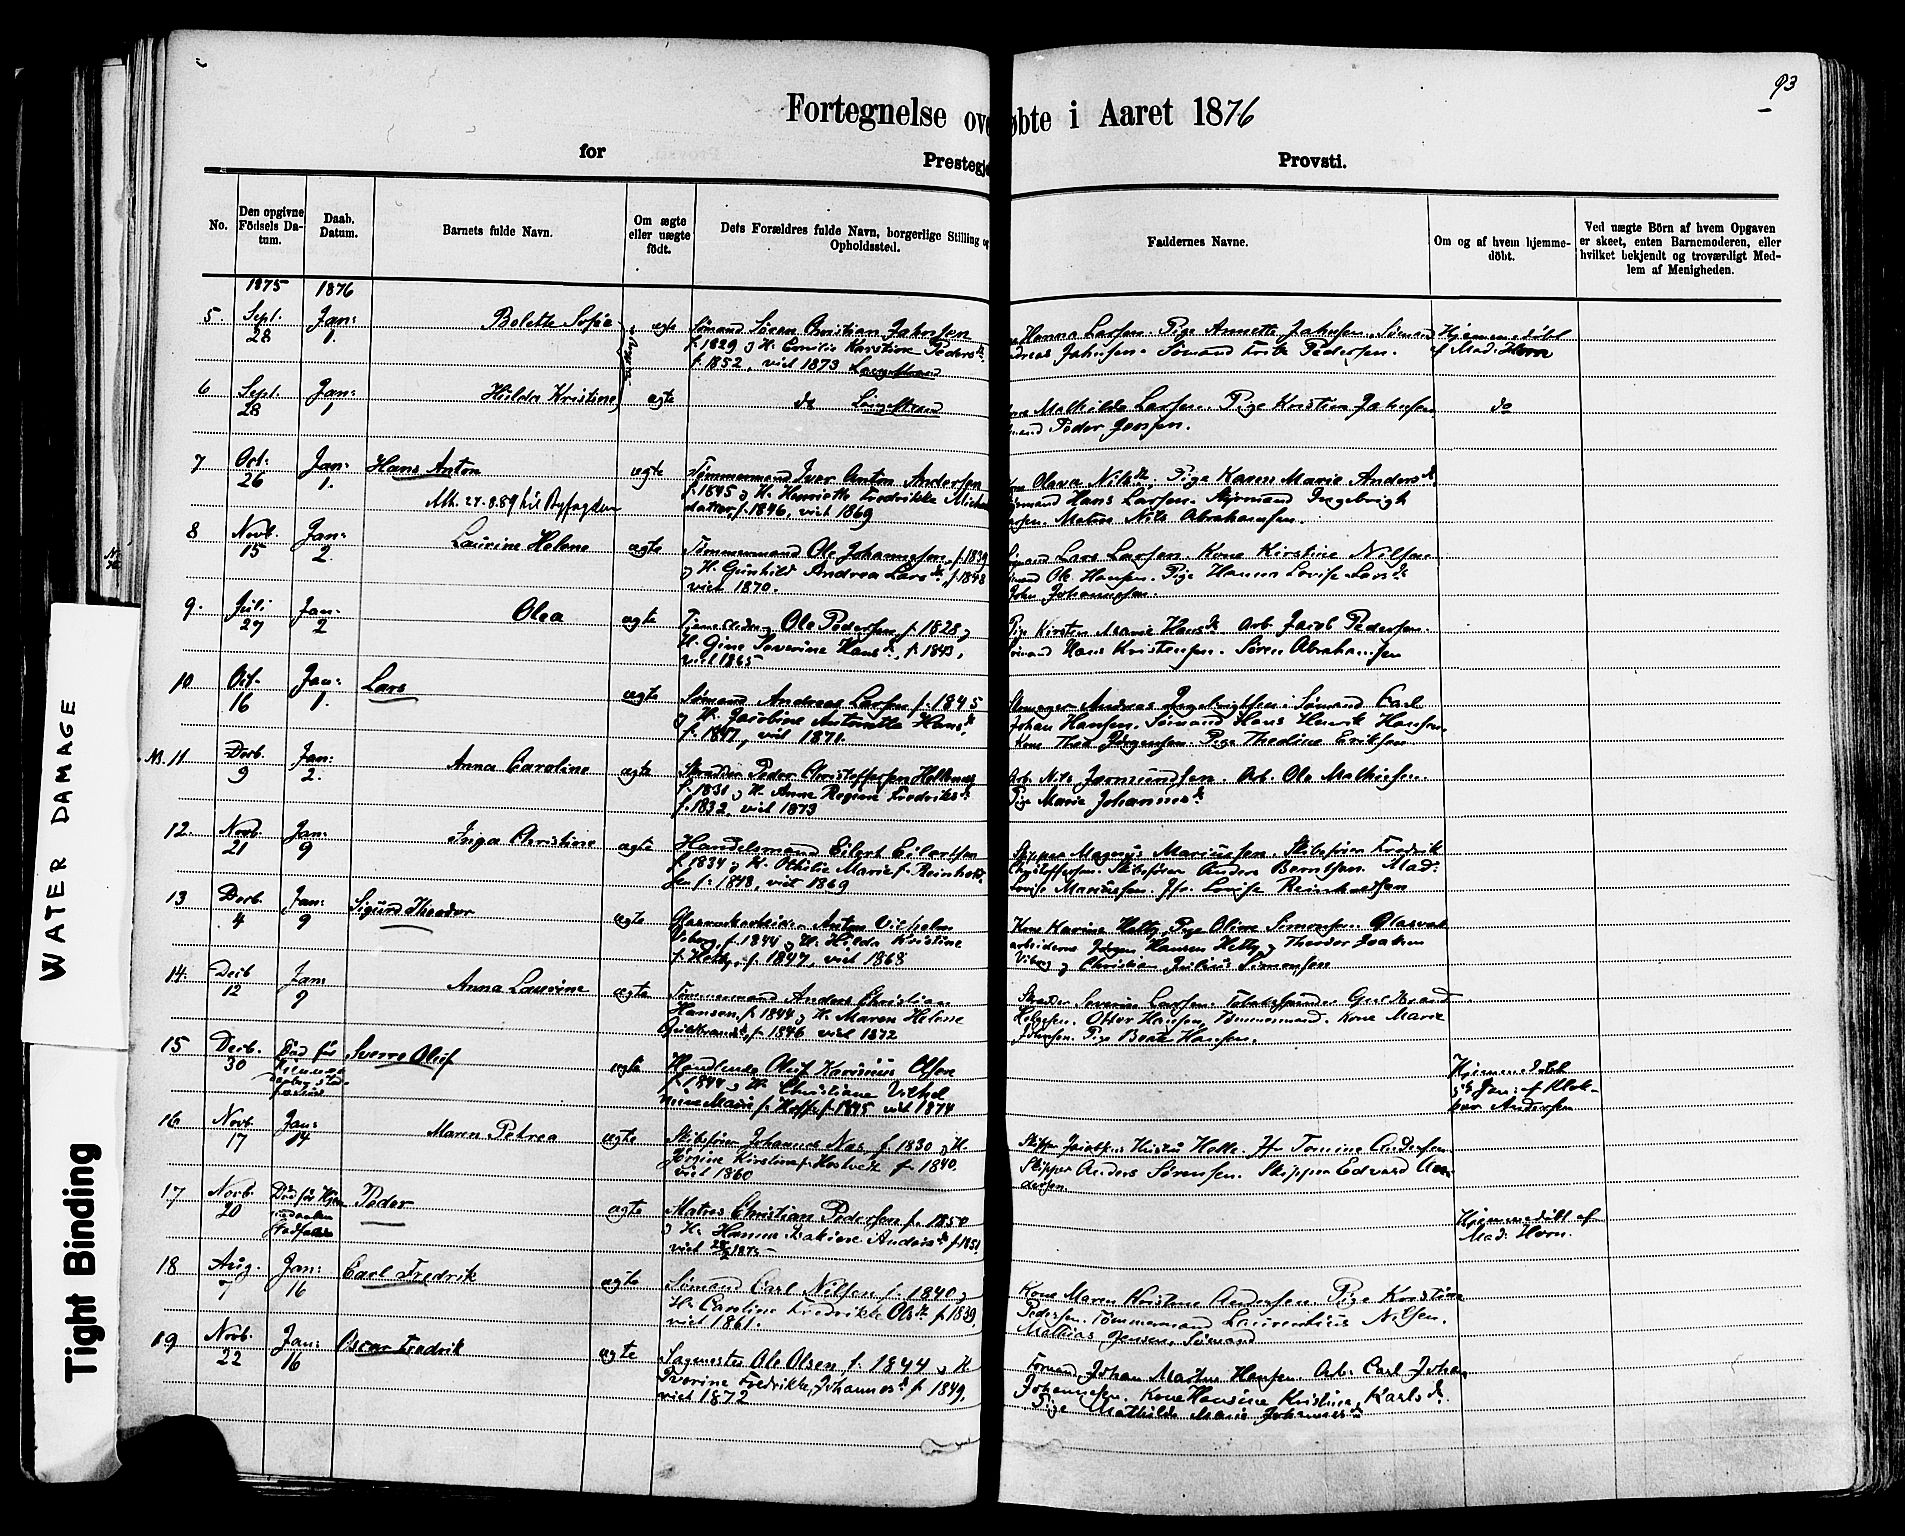 93
Fortegnelse ove øbte i Aaret 1876
for Prestegje Provsti.
No.
Den opgivne Födsels Da-tum.
Daab. Datum.
Barnets fulde Navn.
Om ægte eller uægte födt.
Dets Forældres fulde Navn, borgerlige Stilling og Opholdssted.
Faddernes Navne.
Om og af hvem hjemme-döbt.
Ved uægte Börn af hvem Opgaven er skeet, enten Barnemoderen, eller hvilket bekjendt og troværdigt Med-lem af Menigheden.
1875 1876
5. Sept. 28 Jan: 1. Bolette Sofie ægte Sømand Søren Christian Jahnsen
f. 1829 og H. Emilie Karstine Peders
f. 1852, viet 1873 Langestrand
Hanna Larsen. Pige Annette Jahnsen. Sømand
dreas Jahnsen. Sømand Erik Pedersen.
Hjemmedöbt
af Mad. Horn
6 Sept. 28 Jan: 1 Hilda Kristine ægte do Langestrand
Mathilde Larsen. Pige Kristine Jahnsen
mand Peder Jensen.
do
7 Oct. 26 Jan: 1. Hans Anton ægte Tømmermand Iver Anton Andersen
f. 1845 og H. Henriette Fredrikke
datter, f. 1846, viet 1869
Att. 27.8.89 til Byfogden
Olava Nilsd. Pige Karen Marie Andersd
mand Hans Larsen. Styrmand Ingebrigt
Matros Nils Abrahamsen.
8 Novb. 15 Jan: 2. Laurine Helene ægte Tømmermand Ole Johannesen, f. 1839
og H. Gunhild Andrea Larsd., f. 1848
viet 1870.
mand Lars Larsen. Kone Kirstine Nilsen
mand Ole Hansen. Pige Hanna Lovise Larsd
John Johannesen.
9. Juli 27 Jan: 2 Olea ægte Ole Pedersen f. 1828 og
H. Gine Severine Hansd., f. 1843,
viet 1865
Pige Kirsten Marie Hansd. Arb. Jacob Pedersen.
Sømand Hans Kristensen. Søren Abrahamsen
10 Oct. 16 Jan: 1. Lars ægte Sømand Andreas Larsen f. 1845
og H. Jacobine Antonette Hansd
f. 1847, viet 1871.
Andreas Ingebrigtsen. Sømand Carl
Johan Hansen. Sømand Hans Henrik Hansen.
Kone Thea Jörgensen. Pige Thedine Eriksen
11 Decb. 9 Jan: 2. Anna Caroline ægte Skrædder Peder Christoffersen
f. 1831 og H. Anne Regine Fredriksd
f. 1832, viet 1873
Arb. Nils Jormundsen. Arb. Ole Mathisen
Pige Marie Johannesd.
12. Novb. 21 Jan: 9 Inga Christine ægte Handelsmand Eilert Eilertsen
f. 1834 og H. Othilie Marie f. Reinholt
sen f. 1848, viet 1869
Skipper Magnus Mariussen. Skibsfører Fredrik
Christoffersen. Skibsfører Anders Berntsen. Mad:
Lovise Mariussen. Jfr. Lovise Reinholtsen
13 Decb. 4 Jan: 9 Sigurd Theodor ægte Glasværkarbeider Anton Vilhelm
Viborg, f. 1844 og H. Hilda Kristine
f. Hetty, f. 1847, viet 1868
Kone Karine Hetty, Pige Oline Simonsen Glasværk
arbeiderne Jörgen Hansen Hetty og Theodor Joakim
Viborg og Christian Julius Simonsen
14. Decb 12 Jan: 9 Anna Laurine ægte Tømmermand Anders Christian
Hansen, f. 1844 og H. Maren Helene
Gulbrandsd, f. 1846 viet 1872
Severine Larsen. Gulbrand
Helgesen. Otter Hansen, Tømmermand. Kone Marie
Johnsen. Pige Berte Hansen.
15 Decb. 30 Død før
Sverre Oluf ægte Handlende Oluf Karinius Olsen
f. 1844 og H. Christiane Vilhel
mine Marie f. Hoff f. 1845 viet 1874
Hjemmedöbt
Jan: af Klok-
ker Andersen
16 Novb 17 Jan: 14 Maren Petrea ægte Skibsfører Johannes Næs, f. 1830 og H.
Jörgine Kirstine f. f. 1840.
viet 1860
Skipper Holte. Jfr Tomine Andersen
Skipper Anders Sørensen. Skipper Edvard An
dersen.
17 Novb. 20 Død før
Peder ægte Matros Christian Pedersen f. 1850
og H. Hanna Andersd f. 1851
viet
Hjemmedöbt af
Mad. Horn.
18 Aug. 7 Jan: 16 Carl Fredrik ægte Sømand Carl Nilsen f. 1840 og
H. Caroline Fredrikke Olsd f. 1839,
viet 1861.
Kone Maren Kirstine Andersen. Pige Kirstine
Pedersen. Tømmermand Laurentius Nilsen.
Mathias Jensen, Sømand
19 Novb. 22 Jan: 16 Oscar Fredrik ægte Sagmester Ole Olsen f. 1844 og H.
Severine Fredrikke Johannesd f. 1849,
viet 1872
Formand Johan Martin Hansen. Arb: Carl Johan
Johannesen. Kone Hansine Kristine Karlsd.
Pige Mathilde Marie Johannesd
WATER DAMAGE
Tight Binding